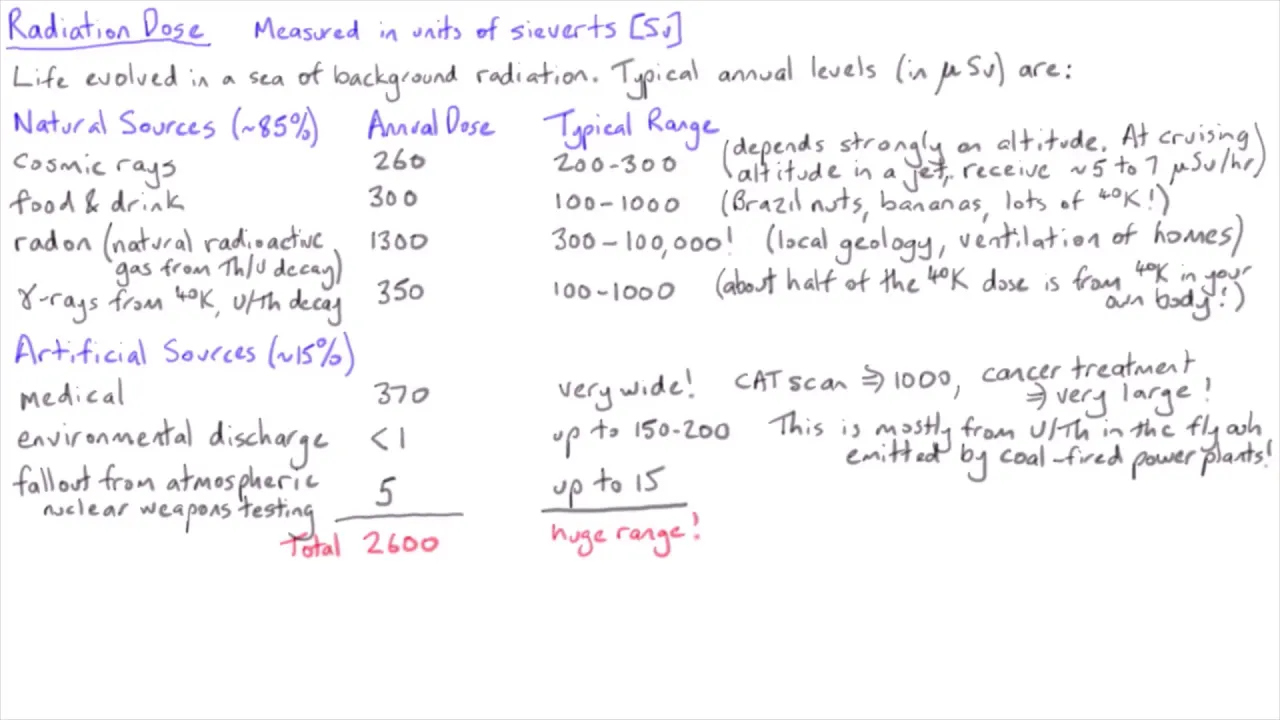 Radiation Dose Measured in units of sieverts [Sv]
Life evolved in a sea of background radiation. Typical annual levels (in μSv) are:
Natural Sources (~85%) Annual Dose Typical Range
cosmic rays 260 200-300 (depends strongly on altitude. At cruising
altitude in a jet, receive ~5 to 7 μSv/hr)
food & drink 300 100-1000 (Brazil nuts, bananas, lots of ⁴⁰K!)
radon (natural radioactive 1300 300-100,000! (local geology, ventilation of homes)
gas from Th/U decay)
γ-rays from ⁴⁰K, U/Th decay 350 100-1000 (about half of the ⁴⁰K dose is from ⁴⁰K in your
own body!)
Artificial Sources (~15%)
medical 370 very wide! CAT scan ⇒ 1000, cancer treatment
⇒ very large!
environmental discharge <1 up to 150-200 This is mostly from U/Th in the fly ash
emitted by coal-fired power plants!
fallout from atmospheric 5 up to 15
nuclear weapons testing
Total 2600 huge range!